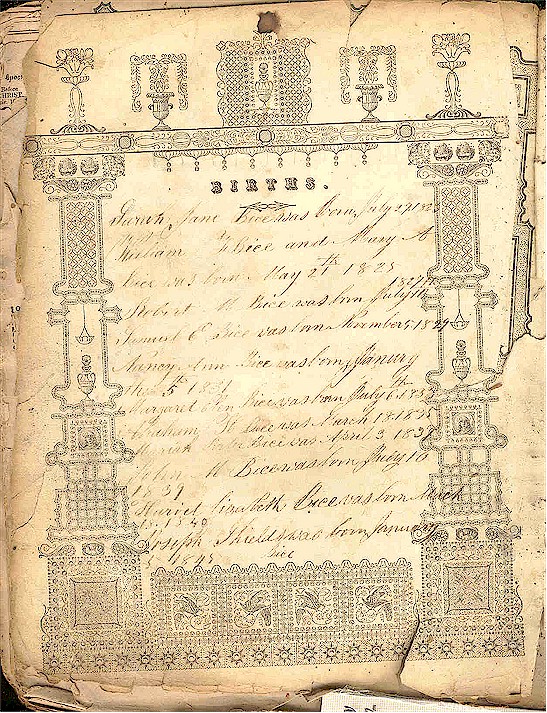 Epoc
Before
CHRIST
BIRTHS.
Sarah Jane Bice was born July 27 182
William F Bice and Mary A
Bice was born May 21th 1825
1827
Robert M Bice was born July 14
Samuel E Bice was born November 5 1829
Nancy Ann Bice was born January
the 5th 1831
Margaret Ellen Bice was born July 6th 183
Abraham H Bice was March 18 1835
Bice was April 3 1837
John M Bice was born July 10
1837
Elizabeth Bice was born March
18 1840
Joseph Shields was born January
Bice
5 1843